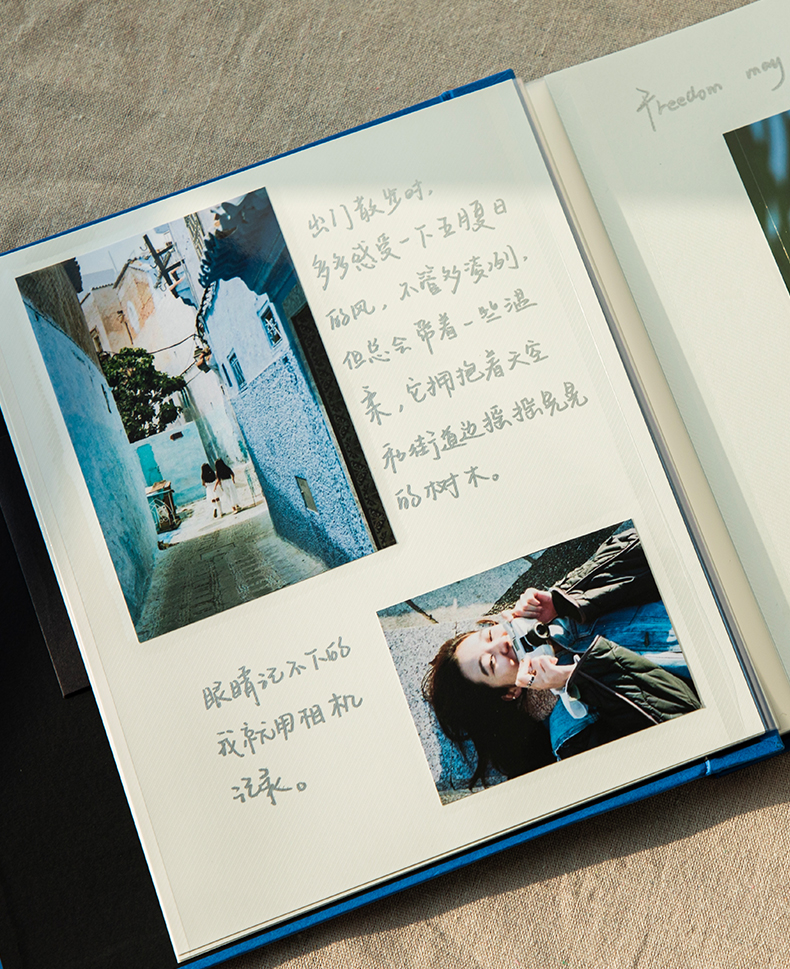 出门散步时，
多多感受一下五月夏日
的风，不管多凛冽，
但总会带着一些温
柔，它拥抱着天空
和街道边摇摇晃晃
的树木。
眼睛记不下的
我就用相机
记录。
Freedom may